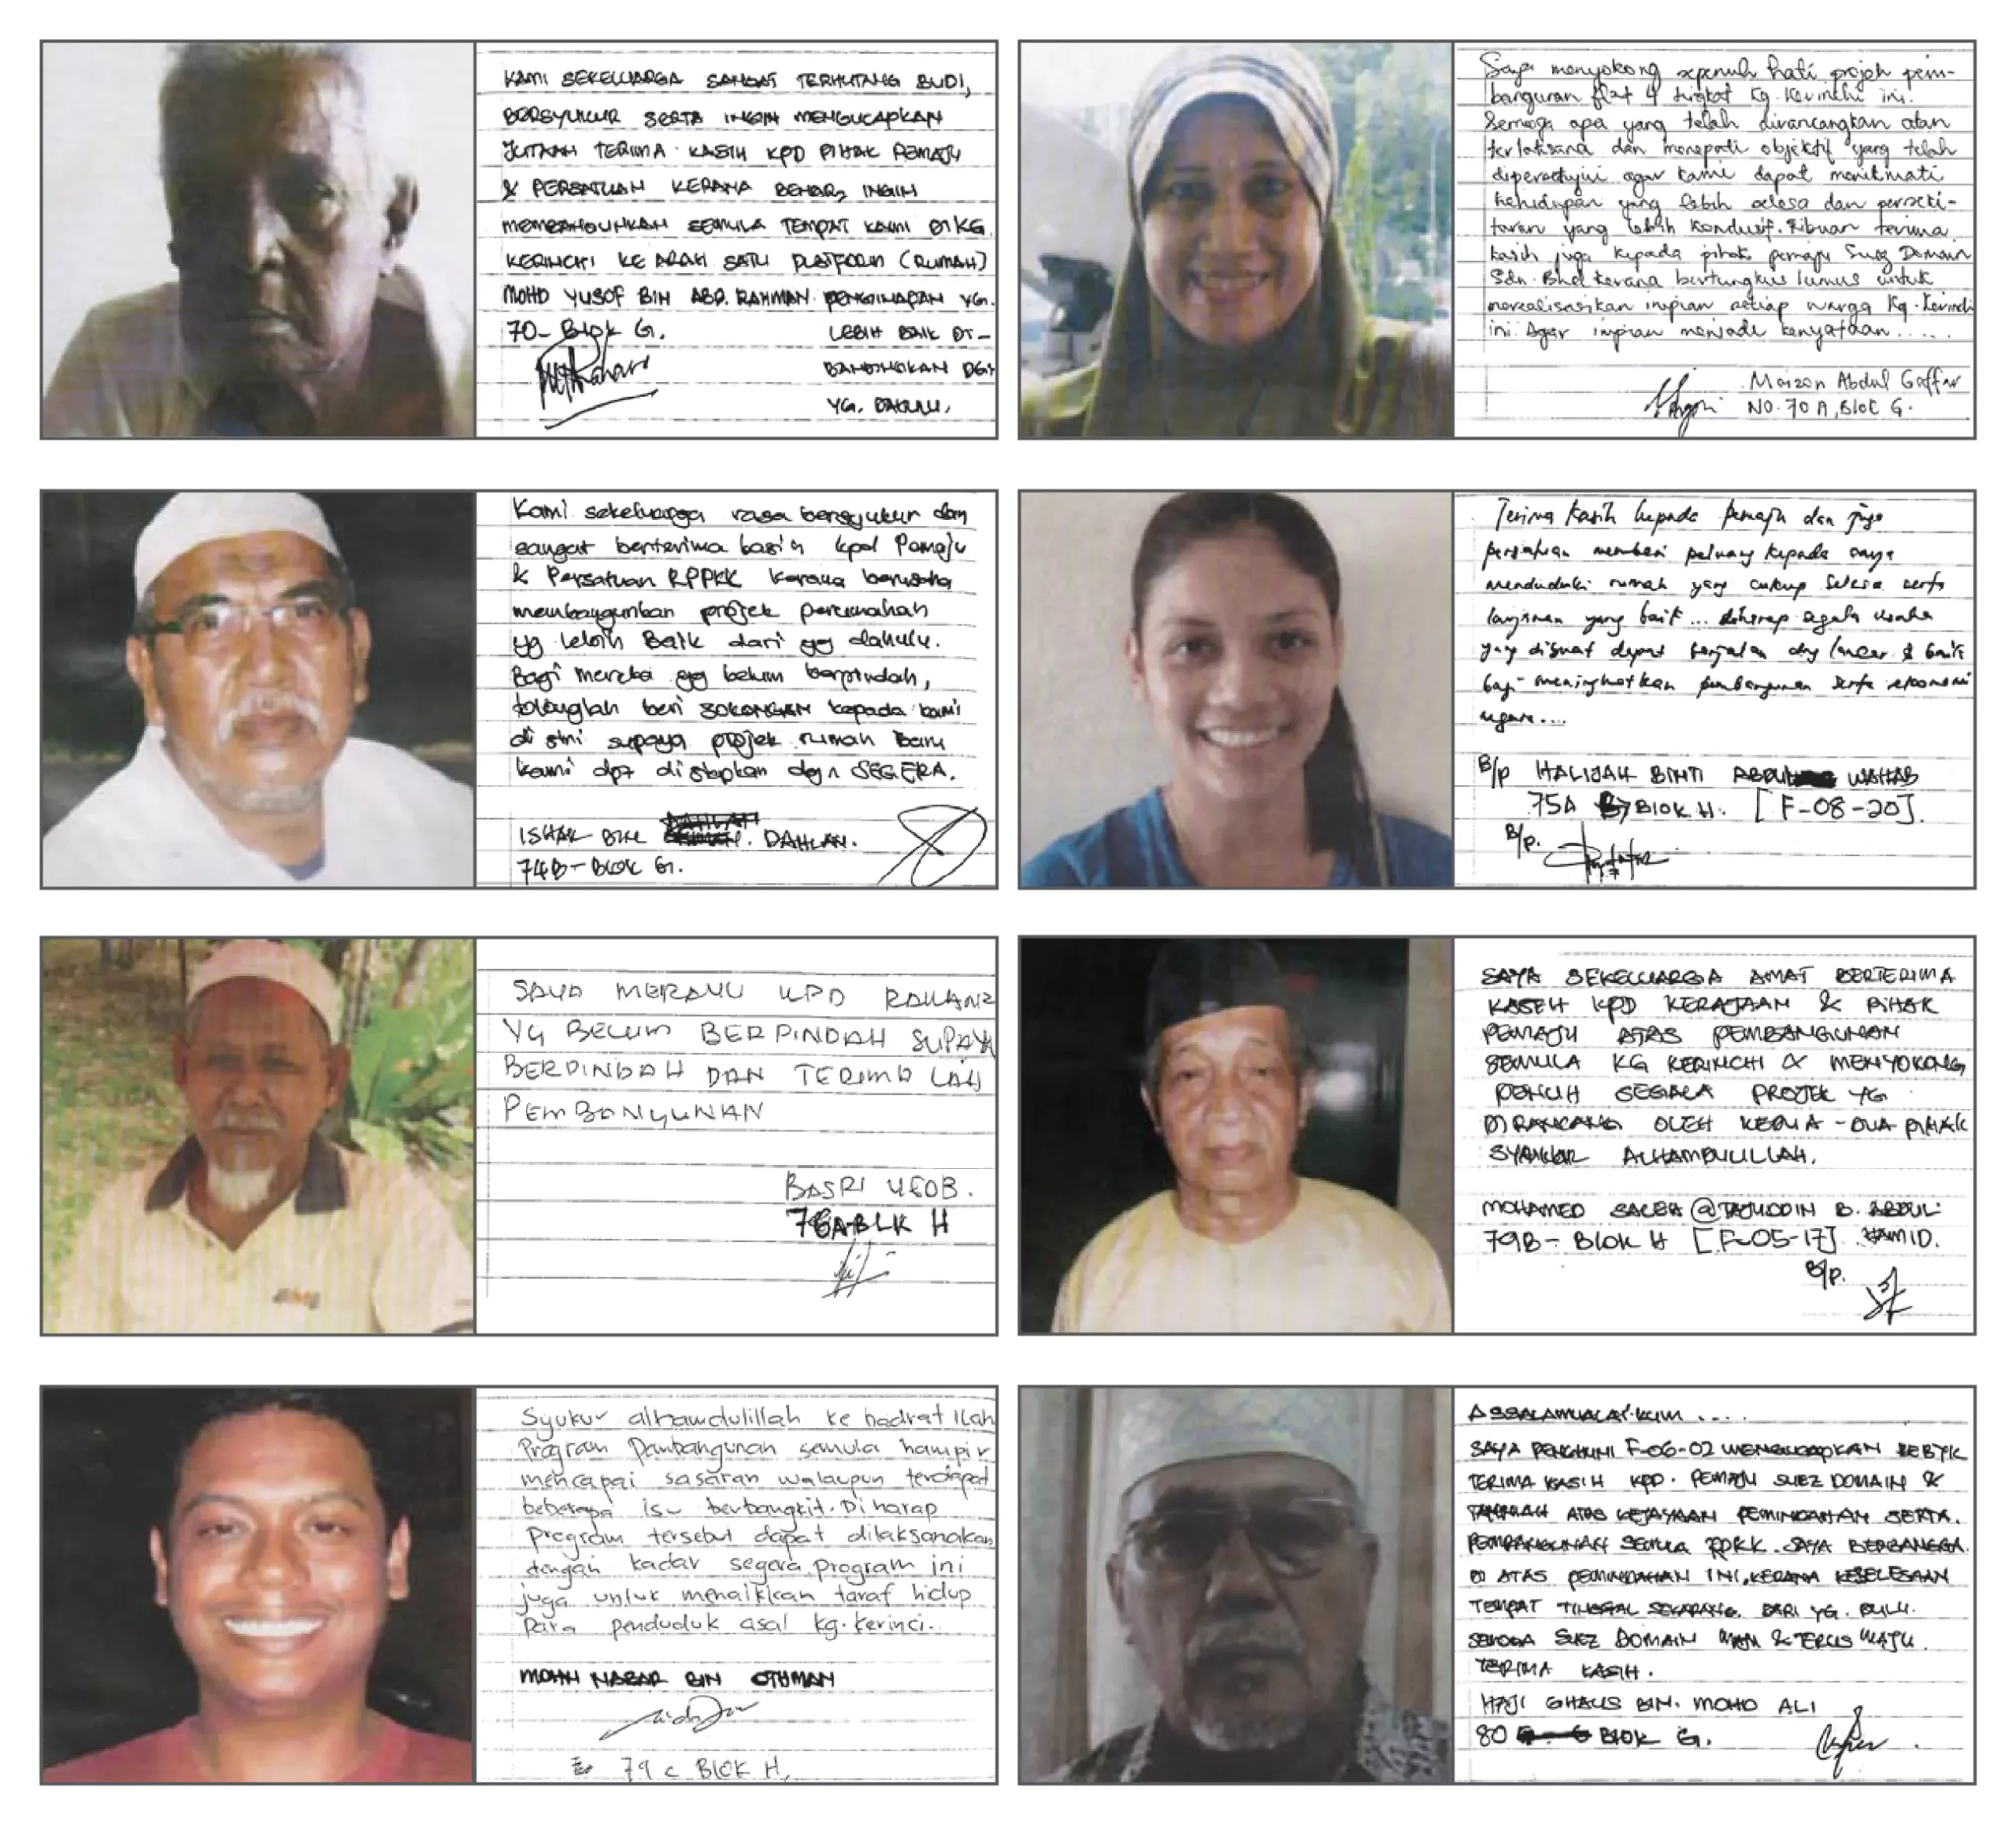 KAMI SEKELUARGA SANGAT TERHUTANG BUDI,
BERSYUKUR SERTA INGIN MENGUCAPKAN
JUTAAN TERIMA KASIH KPD PIHAK PEMAJU
& PERSATUAN KERANA BENAR2 INGIN
MEMBANGUNKAN SEMULA TEMPAT KAMI DI KG.
KERINCHI KE ARAH SATU PLATFORM (RUMAH)
MOHD YUSOF BIN ABD. RAHMAN. PENGINAPAN YG.
70- Blok G. LEBIH BAIK DI-
BANDINGKAN DGN
YG. DAHULU.
Saya menyokong sepenuh hati projek pem-
bangunan flat 4 tingkat Kg. Kerinchi ini.
Semoga apa yang telah dirancangkan akan
terlaksana dan menepati objektif yang telah
dipersetujui agar kami dapat menikmati
kehidupan yang lebih selesa dan perseki-
taran yang lebih kondusif. Ribuan terima
kasih juga kepada pihak pemaju Suez Domain
Sdn. Bhd kerana bertungkus lumus untuk
merealisasikan impian setiap warga Kg. Kerinchi
ini. Agar impian menjadi kenyataan.....
Maizon Abdul Gaffar
NO. 70 A, Blok G.
Kami sekeluarga rasa bersyukur dan
sangat berterima kasih kpd Pemaju
& Persatuan RPPKK kerana berusaha
membangunkan projek perumahan
yg lebih Baik dari yg dahulu.
Bagi mereka yg belum berpindah,
tolonglah beri SOKONGAN kepada kami
di sini supaya projek rumah baru
kami dpt disiapkan dgn SEGERA.
ISHAK BIN DAHLAN.
74B- BLOK G.
Terima kasih kepada pemaju dan juga
persatuan memberi peluang kepada saya
menduduki rumah yang cukup selesa serta
layanan yang baik... diharap segala usaha
yang dibuat dapat berjalan dng lancar & baik
bagi meningkatkan pembangunan serta ekonomi
negara....
B/p HALIJAH BINTI ABDUL WAHAB
75A Blok H. [F-08-20].
B/p.
SAYA MERAYU KPD RAKAN2
YG BELUM BERPINDAH SUPAYA
BERPINDAH DAN TERIMA LAH
PEMBANGUNAN
BASRI YEOB.
76A BLK H
SAYA SEKELUARGA AMAT BERTERIMA
KASEH KPD KERAJAAN & PIHAK
PEMAJU ATAS PEMBANGUNAN
SEMULA KG KERINCHI & MENYOKONG
PENUH SEGALA PROJEK YG
DIRANCANG OLEH KEDUA-DUA PIHAK
SYUKUR ALHAMDULILLAH.
MOHAMED SALEH @ TAJUDDIN B. ABDUL
79B- BLOK H [F-05-17] HAMID.
B/p.
Syukur alhamdulillah ke hadrat Ilahi
Program Pembangunan semula hampir
mencapai sasaran walaupun terdapat
beberapa isu berbangkit. Di harap
program tersebut dapat dilaksanakan
dengan kadar segera. Program ini
juga untuk menaikkan taraf hidup
para penduduk asal kg. kerinci.
MOHD BIN OTHMAN
79 C BLOK H,
ASSALAMUALAIKUM ....
SAYA PENGHUNI F-06-02 MENGUCAPKAN
TERIMA KASIH KPD. PEMAJU SUEZ DOMAIN &
ATAS KEJAYAAN PEMINDAHAN SERTA
PEMBANGUNAN SEMULA RPKK. SAYA BERBANGGA
DI ATAS PEMINDAHAN INI, KERANA KESELESAAN
TEMPAT TINGGAL SEKARANG. DARI YG. DULU.
SEMOGA SUEZ DOMAIN & TERUS MAJU.
TERIMA KASIH.
HAJI GHAUS BIN. MOHD ALI
80 BLOK G.